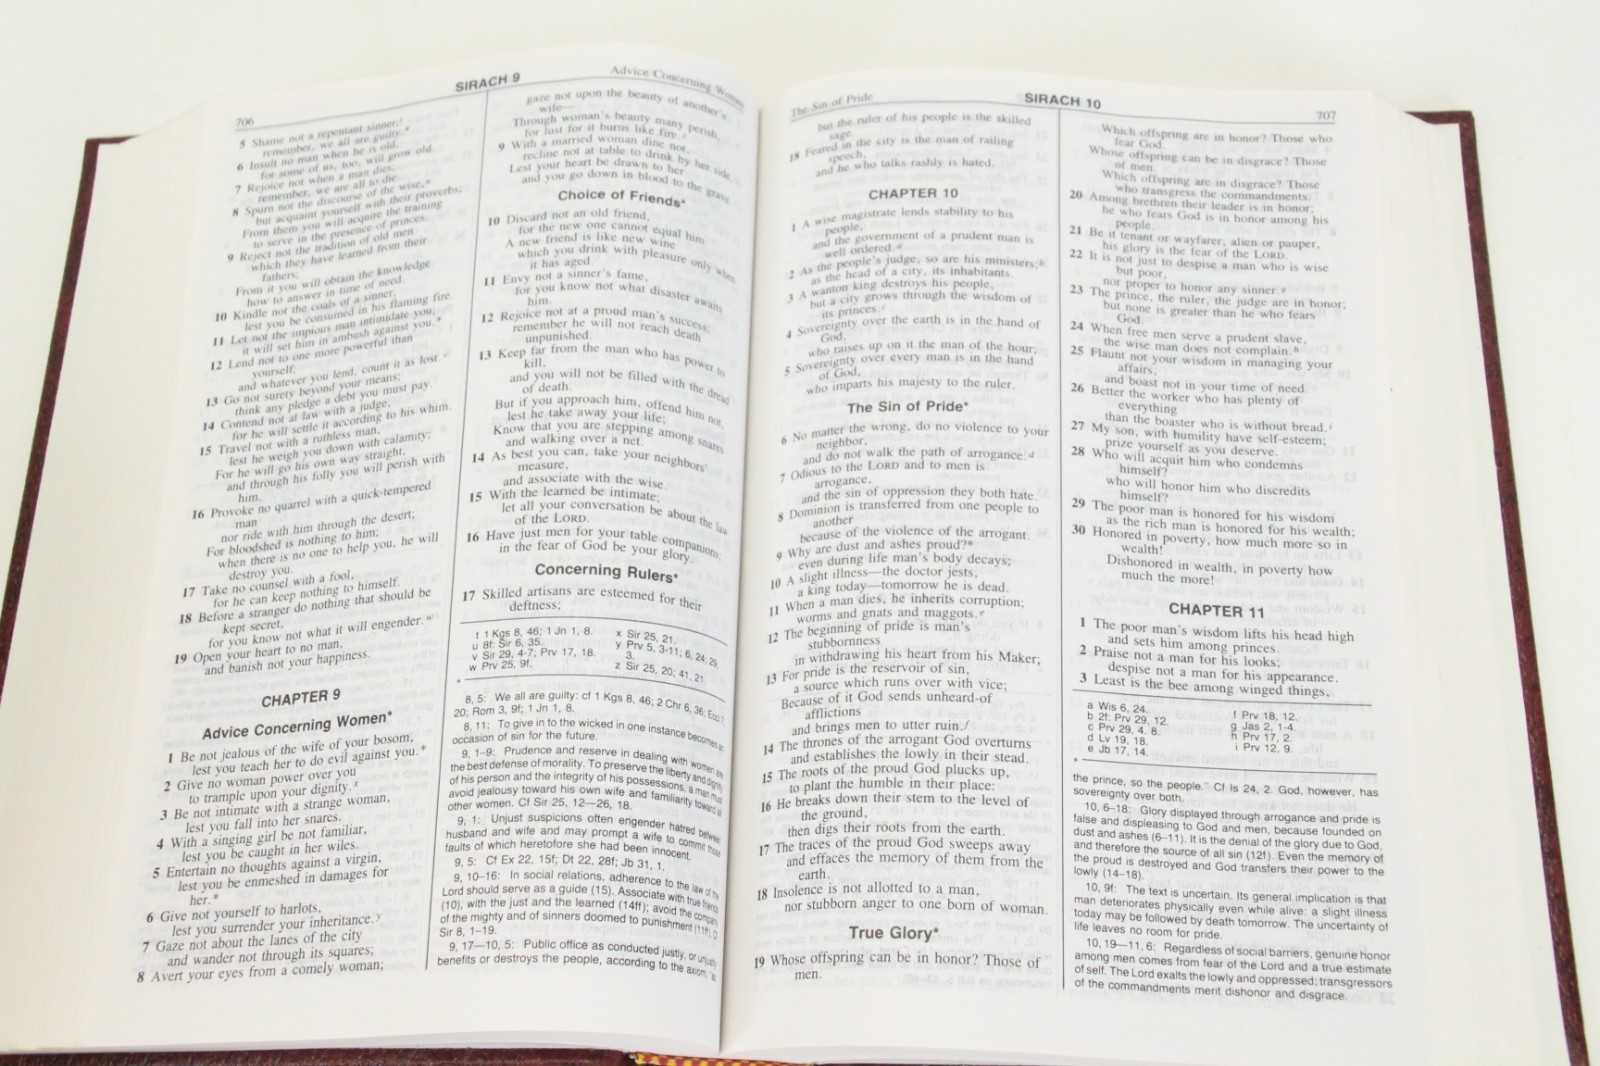 706
SIRACH 9
Advice Concerning Women
5 Shame not a repentant sinner;t
remember, we all are guilty.*
6 Insult no man when he is old,
for some of us, too, will grow old.
7 Rejoice not when a man dies;
remember, we are all to die.
8 Spurn not the discourse of the wise,u
but acquaint yourself with their proverbs;
From them you will acquire the training
to serve in the presence of princes.
9 Reject not the tradition of old men
which they have learned from their
fathers;
From it you will obtain the knowledge
how to answer in time of need.
10 Kindle not the coals of a sinner,
lest you be consumed in his flaming fire.
11 Let not the impious man intimidate you;
it will set him in ambush against you.*
12 Lend not to one more powerful than
yourself;
and whatever you lend, count it as lost.v
13 Go not surety beyond your means;
think any pledge a debt you must pay.
14 Contend not at law with a judge,
for he will settle it according to his whim.
15 Travel not with a ruthless man,
lest he weigh you down with calamity;
For he will go his own way straight,
and through his folly you will perish with
him.
16 Provoke no quarrel with a quick-tempered
man
nor ride with him through the desert;
For bloodshed is nothing to him;
when there is no one to help you, he will
destroy you.
17 Take no counsel with a fool,
for he can keep nothing to himself.
18 Before a stranger do nothing that should be
kept secret,
for you know not what it will engender.w
19 Open your heart to no man,
and banish not your happiness.
CHAPTER 9
Advice Concerning Women*
1 Be not jealous of the wife of your bosom,
lest you teach her to do evil against you.*
2 Give no woman power over you
to trample upon your dignity.x
3 Be not intimate with a strange woman,
lest you fall into her snares.
4 With a singing girl be not familiar,
lest you be caught in her wiles.
5 Entertain no thoughts against a virgin,
lest you be enmeshed in damages for
her.*
6 Give not yourself to harlots,
lest you surrender your inheritance.y
7 Gaze not about the lanes of the city
and wander not through its squares;
8 Avert your eyes from a comely woman;
gaze not upon the beauty of another's
wife—
Through woman's beauty many perish,
for lust for it burns like fire.z
9 With a married woman dine not,
recline not at table to drink by her side,
Lest your heart be drawn to her
and you go down in blood to the grave.
Choice of Friends*
10 Discard not an old friend,
for the new one cannot equal him.
A new friend is like new wine
which you drink with pleasure only when
it has aged.
11 Envy not a sinner's fame,
for you know not what disaster awaits
him.
12 Rejoice not at a proud man's success;
remember he will not reach death
unpunished.
13 Keep far from the man who has power to
kill,
and you will not be filled with the dread
of death.
But if you approach him, offend him not,
lest he take away your life;
Know that you are stepping among snares
and walking over a net.
14 As best you can, take your neighbors'
measure,
and associate with the wise.
15 With the learned be intimate;
let all your conversation be about the law
of the LORD.
16 Have just men for your table companions;
in the fear of God be your glory.
Concerning Rulers*
17 Skilled artisans are esteemed for their
deftness;
t 1 Kgs 8, 46; 1 Jn 1, 8.
u 8f: Sir 6, 35.
v Sir 29, 4-7; Prv 17, 18.
w Prv 25, 9f.
x Sir 25, 21.
y Prv 5, 3-11; 6, 24; 29,
3.
z Sir 25, 20; 41, 21.
*
8, 5: We all are guilty: cf 1 Kgs 8, 46; 2 Chr 6, 36; Eccl 7,
20; Rom 3, 9f; 1 Jn 1, 8.
8, 11: To give in to the wicked in one instance becomes an
occasion of sin for the future.
9, 1-9: Prudence and reserve in dealing with women are
the best defense of morality. To preserve the liberty and dignity
of his person and the integrity of his possessions, a man must
avoid jealousy toward his own wife and familiarity toward all
other women. Cf Sir 25, 12—26, 18.
9, 1: Unjust suspicions often engender hatred between
husband and wife and may prompt a wife to commit those
faults of which heretofore she had been innocent.
9, 5: Cf Ex 22, 15f; Dt 22, 28f; Jb 31, 1.
9, 10-16: In social relations, adherence to the law of the
Lord should serve as a guide (15). Associate with true friends
(10), with the just and the learned (14ff); avoid the company
of the mighty and of sinners doomed to punishment (11ff).
Sir 8, 1-19.
9, 17—10, 5: Public office as conducted justly, or unjustly
benefits or destroys the people, according to the axiom, "as
The Sin of Pride
SIRACH 10
707
but the ruler of his people is the skilled
sage.
18 Feared in the city is the man of railing
speech,
and he who talks rashly is hated.
CHAPTER 10
1 A wise magistrate lends stability to his
people,
and the government of a prudent man is
well ordered.a
2 As the people's judge, so are his ministers;b
as the head of a city, its inhabitants.
3 A wanton king destroys his people,
but a city grows through the wisdom of
its princes.c
4 Sovereignty over the earth is in the hand of
God,
who raises up on it the man of the hour;
5 Sovereignty over every man is in the hand
of God,
who imparts his majesty to the ruler.
The Sin of Pride*
6 No matter the wrong, do no violence to your
neighbor,
and do not walk the path of arrogance.d
7 Odious to the LORD and to men is
arrogance,
and the sin of oppression they both hate.
8 Dominion is transferred from one people to
another
because of the violence of the arrogant.
9 Why are dust and ashes proud?*
even during life man's body decays;
10 A slight illness—the doctor jests,
a king today—tomorrow he is dead.
11 When a man dies, he inherits corruption;
worms and gnats and maggots.e
12 The beginning of pride is man's
stubbornness
in withdrawing his heart from his Maker;
13 For pride is the reservoir of sin,
a source which runs over with vice;
Because of it God sends unheard-of
afflictions
and brings men to utter ruin.f
14 The thrones of the arrogant God overturns
and establishes the lowly in their stead.
15 The roots of the proud God plucks up,
to plant the humble in their place:
16 He breaks down their stem to the level of
the ground,
then digs their roots from the earth.
17 The traces of the proud God sweeps away
and effaces the memory of them from the
earth.
18 Insolence is not allotted to a man,
nor stubborn anger to one born of woman.
True Glory*
19 Whose offspring can be in honor? Those of
men.
Which offspring are in honor? Those who
fear God.
Whose offspring can be in disgrace? Those
of men.
Which offspring are in disgrace? Those
who transgress the commandments.
20 Among brethren their leader is in honor;
he who fears God is in honor among his
people.
21 Be it tenant or wayfarer, alien or pauper,
his glory is the fear of the LORD.
22 It is not just to despise a man who is wise
but poor,
nor proper to honor any sinner.g
23 The prince, the ruler, the judge are in honor;
but none is greater than he who fears
God.
24 When free men serve a prudent slave,
the wise man does not complain.h
25 Flaunt not your wisdom in managing your
affairs,
and boast not in your time of need.
26 Better the worker who has plenty of
everything
than the boaster who is without bread.i
27 My son, with humility have self-esteem;
prize yourself as you deserve.
28 Who will acquit him who condemns
himself?
who will honor him who discredits
himself?
29 The poor man is honored for his wisdom
as the rich man is honored for his wealth;
30 Honored in poverty, how much more so in
wealth!
Dishonored in wealth, in poverty how
much the more!
CHAPTER 11
1 The poor man's wisdom lifts his head high
and sets him among princes.
2 Praise not a man for his looks;
despise not a man for his appearance.
3 Least is the bee among winged things,
a Wis 6, 24.
b 2f: Prv 29, 12.
c Prv 29, 4. 8.
d Lv 19, 18.
e Jb 17, 14.
f Prv 18, 12.
g Jas 2, 1-4.
h Prv 17, 2.
i Prv 12, 9.
*
the prince, so the people." Cf Is 24, 2. God, however, has
sovereignty over both.
10, 6-18: Glory displayed through arrogance and pride is
false and displeasing to God and men, because founded on
dust and ashes (6-11). It is the denial of the glory due to God,
and therefore the source of all sin (12f). Even the memory of
the proud is destroyed and God transfers their power to the
lowly (14-18).
10, 9f: The text is uncertain. Its general implication is that
man deteriorates physically even while alive: a slight illness
today may be followed by death tomorrow. The uncertainty of
life leaves no room for pride.
10, 19—11, 6: Regardless of social barriers, genuine honor
among men comes from fear of the Lord and a true estimate
of self. The Lord exalts the lowly and oppressed; transgressors
of the commandments merit dishonor and disgrace.